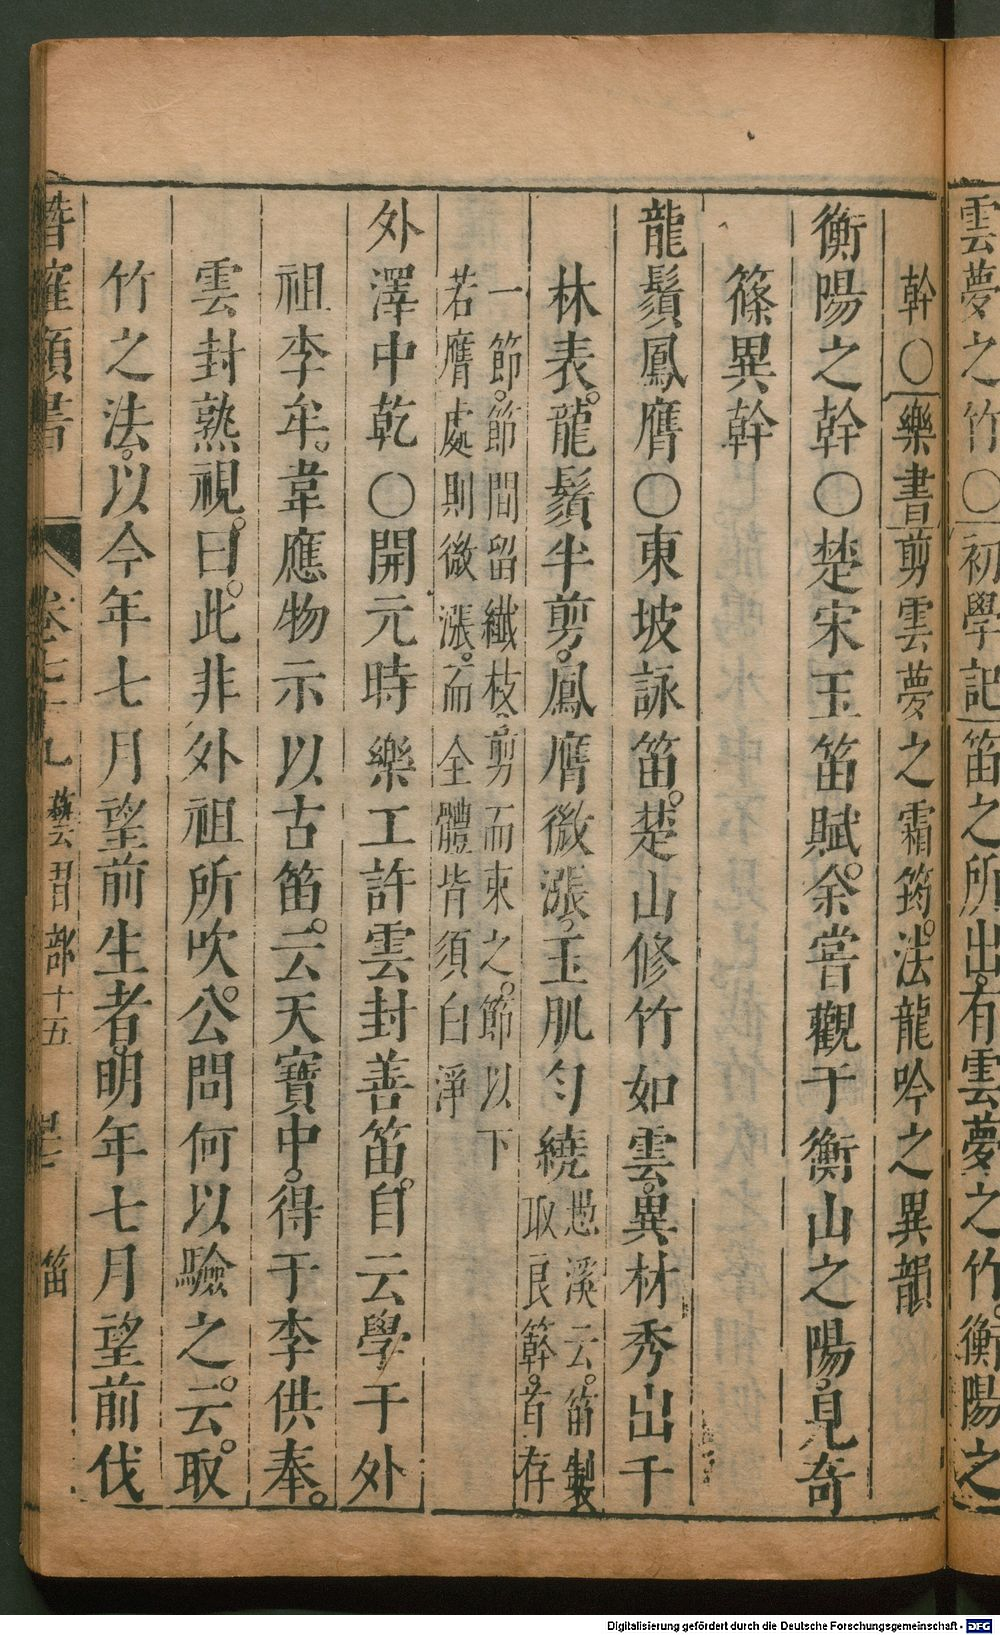 雲夢之竹○初學記笛之所出有雲夢之竹衡陽之
幹○樂書剪雲夢之霜筠。法龍吟之異韻
衡陽之幹○楚宋玉笛賦。余嘗觀于衡山之陽。見奇
篠異幹
龍鬚鳳膺○東坡詠笛。楚山修竹如雲。異材秀出千
林表。龍鬚半剪。鳳膺微漲。玉肌勻繞
愚溪云。笛製
取良簳。首存
一節。節間留纖枝。剪而束之。節以下
若膺處則微漲。而全體皆須白淨
外澤中乾○開元時樂工許雲封善笛。自云學于外
祖李牟。韋應物示以古笛。云天寶中。得于李供奉。
雲封熟視曰。此非外祖所吹。公問何以驗之。云。取
竹之法。以今年七月望前生者。明年七月望前伐
潛確類書
卷七十九
藝習部十五
笛
Digitalisierung gefördert durch die Deutsche Forschungsgemeinschaft - DFG